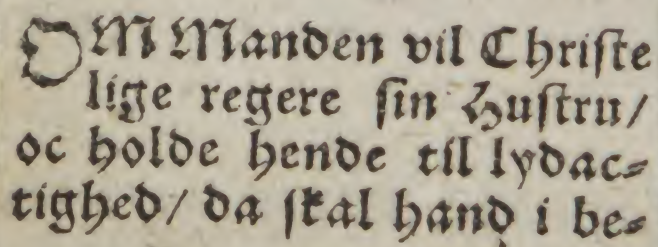 OM Manden vil Christe
lige regere sin Hustru/
oc holde hende til lydac⸗
tighed/ da skal hand i be⸗